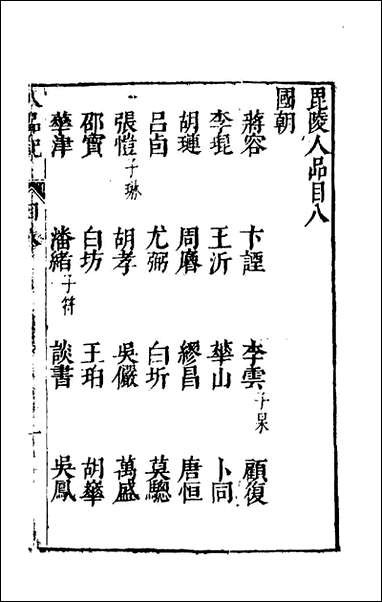 毘陵人品目八
國朝
蔣容 卞諲 李雲子杲 顧復
李琨 王沂 華山 卜同
胡璉 周𪋤 繆昌 唐恒
呂卣 尤弼 白圻 莫驄
張愷子琳 胡孝 吳儼 萬盛
邵寶 白坊 王珀 胡華
華津 潘緒子符 談書 吳鳳
人品記 目錄